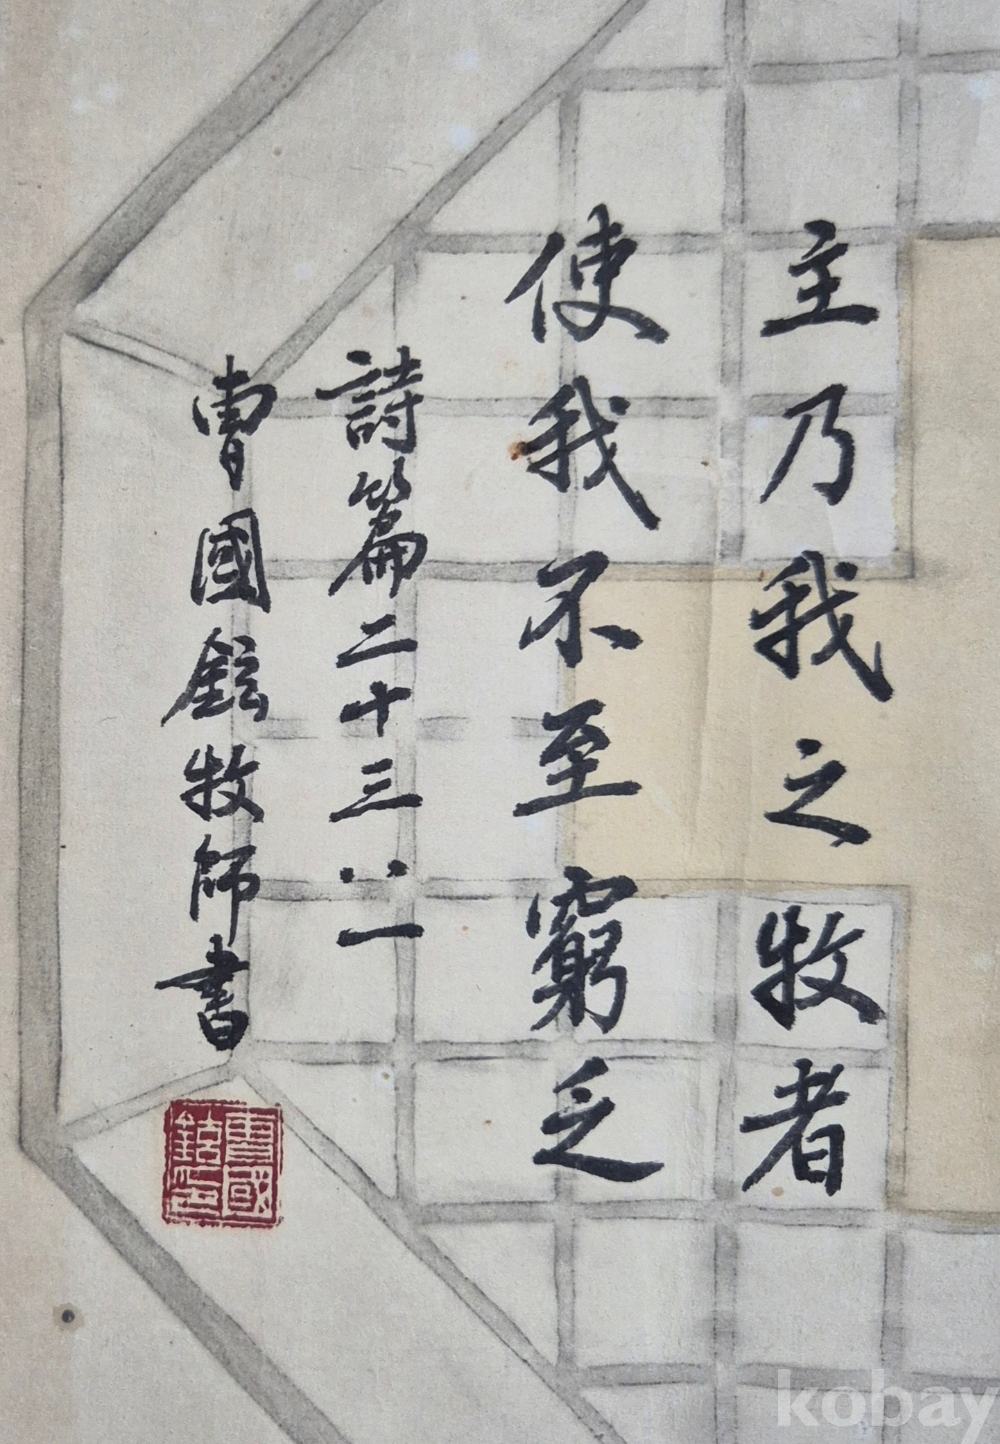 主乃我之牧者
使我不至窮乏
詩篇二十三:一
曹國鉉牧師書
kobay